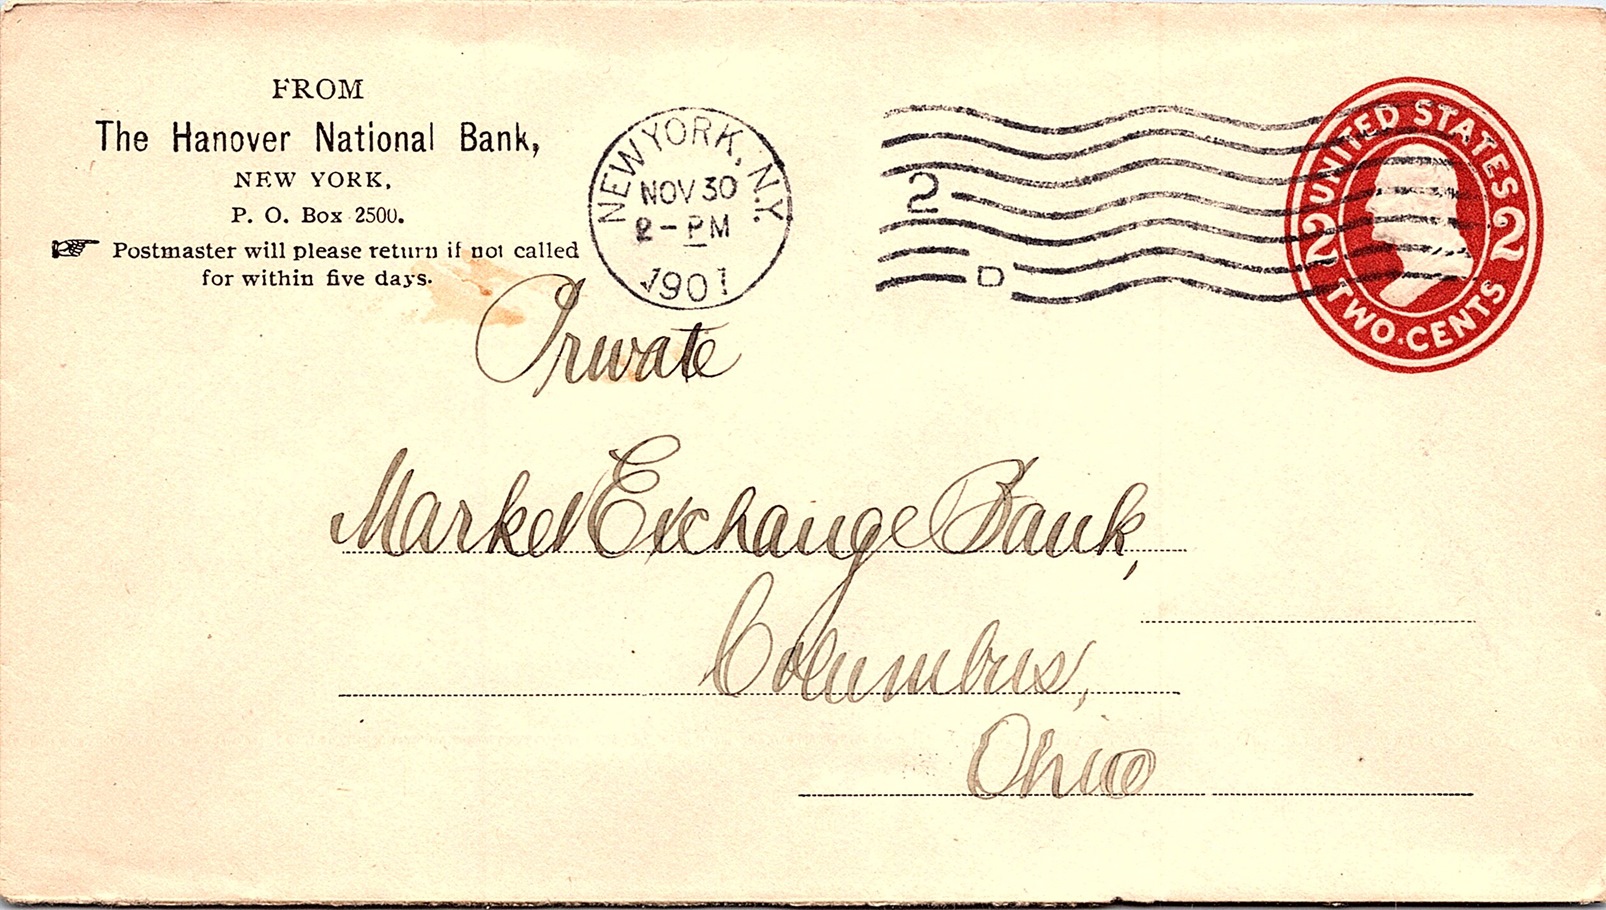 FROM
The Hanover National Bank,
NEW YORK,
P. O. Box 2500.
Postmaster will please return if not called
for within five days.
NEW YORK, N.Y.
NOV 30
2-PM
1901
2
D
UNITED STATES
2 2
TWO CENTS
Private
Market Exchange Bank,
Columbus,
Ohio